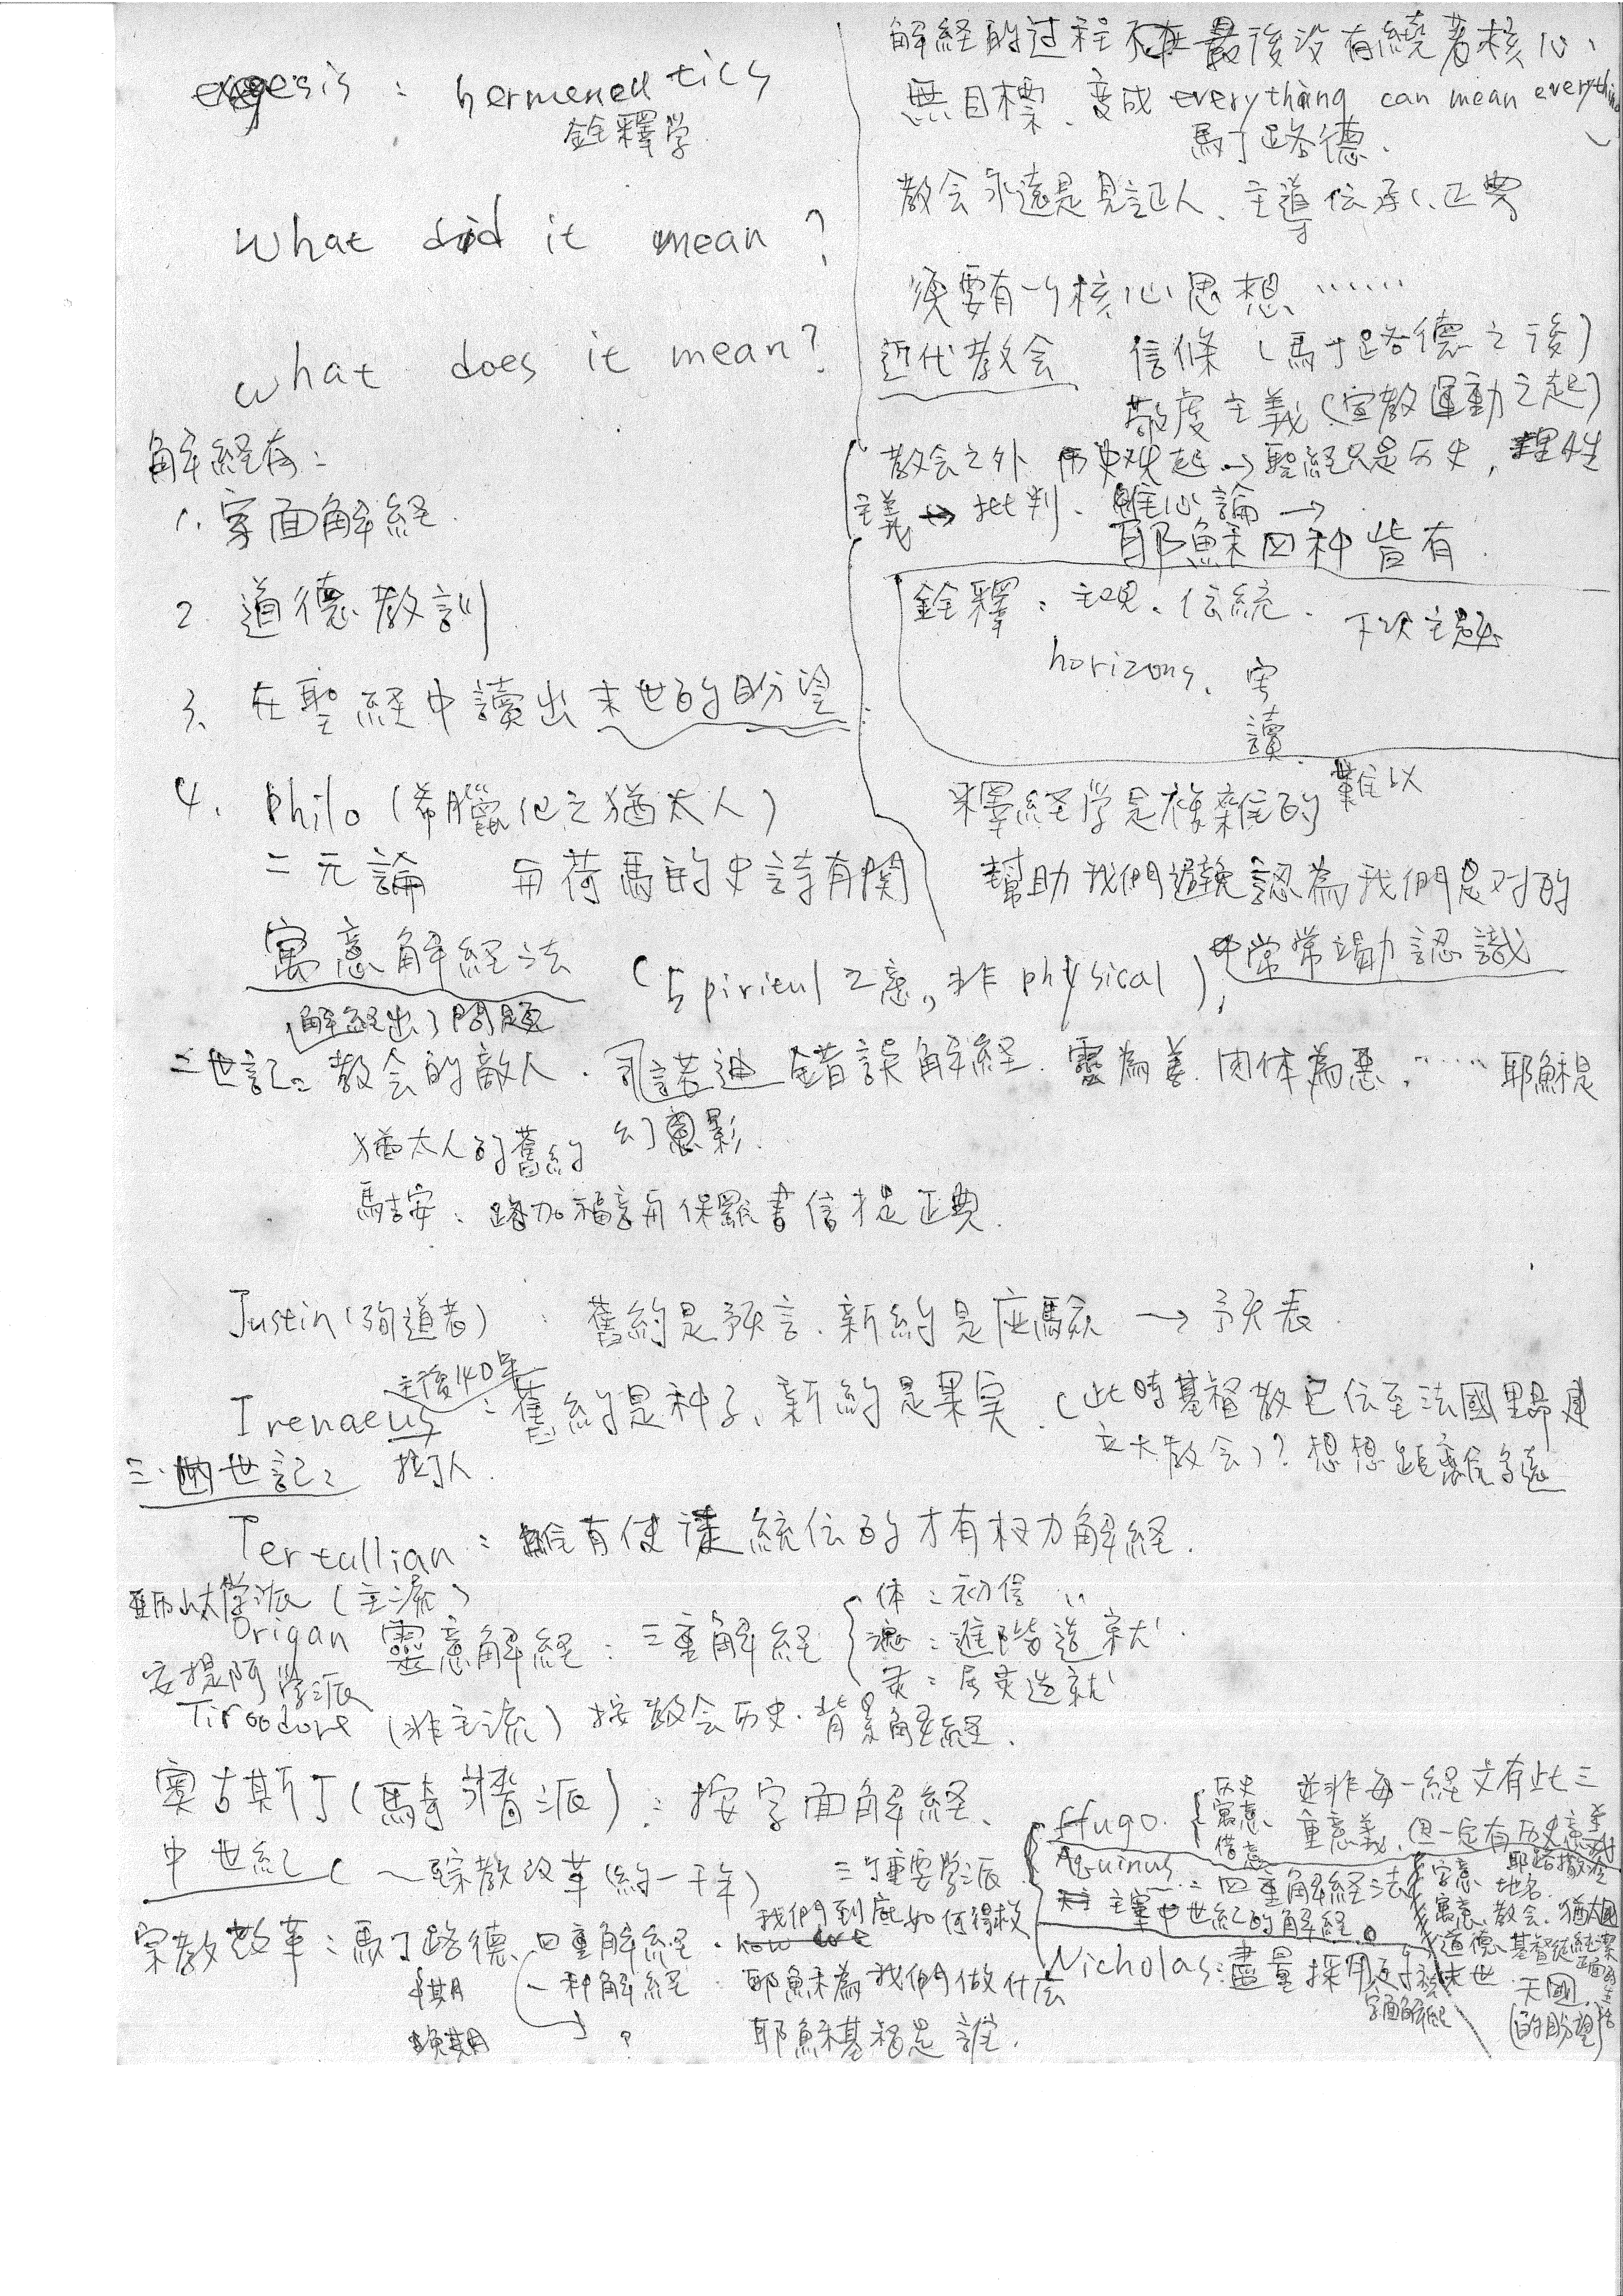 exegesis : hermeneutics
銓釋学
What did it mean ?
what does it mean?
解経有:
1. 字面解経.
2. 道德教訓
3. 在聖経中讀出末世的盼望
4. Philo (希臘化之猶太人)
二元論 与荷馬的史詩有関
寓意解経法 (Spiritul 之意,非 physical),
解経出了問題
二世記: 教会的敵人. 諾迪 錯誤解経. 靈為善. 肉体為惡. …… 耶穌是
幻影.
猶太人的舊約
馬吉安: 路加福音与保羅書信才是正典.
Justin (殉道者) : 舊約是預言. 新約是应驗 → 予表.
主後140年
Irenaeus : 舊約是种子、新約是果実. (此時基督教已伝至法國里昂建
立大教会)? 想想距離多遠
三.四世記:
Tertullian : 唯有使徒統伝的才有权力解経.
亞历山大学派 (主流)
Origan 靈意解経: 三重解経
体: 初信
魂: 進階造就.
灵: 属灵造就
安提阿学派
(非主流) 按教会历史.背景解経.
奧古斯丁 (馬奇派) : 按字面解経.
中世紀 (~宗教改革 (約一千年) 三个重要学派
Hugo.
历史
寓意
借意
並非每一経文有此三
重意義. 但一定有历史意義
Aquinus: 四重解経法
主宰中世紀的解経.
字意 地名. 耶路撒冷
寓意. 教会. 猶太國
道德. 基督徒
末世. 天國.
(的盼望)
Nicholas: 盡量採用
字面解経
宗教改革: 馬丁路德. 四重解経. 我們到底如何得救
早期 一种解経: 耶穌為我們做什麼
晚期 ? 耶穌基督是誰.
解経的过程不在最後没有繞著核心、
無目標、変成 everything can mean everything
馬丁路德.
教会永遠是見証人、主導伝承、正典
須要有一个核心思想、……
近代教会 信條 (馬丁路德之後)
敬虔主義 (宣教運動之起)
教会之外 历史兴起 → 聖経只是历史, 理性
主義 → 批判、唯心論 →
耶穌四种皆有.
銓釋: 主現、伝統. 下次主題
horizons. 字
讀.
釋経学是複雜的 難以
幫助我們避免認為我們是对的
也常常認識